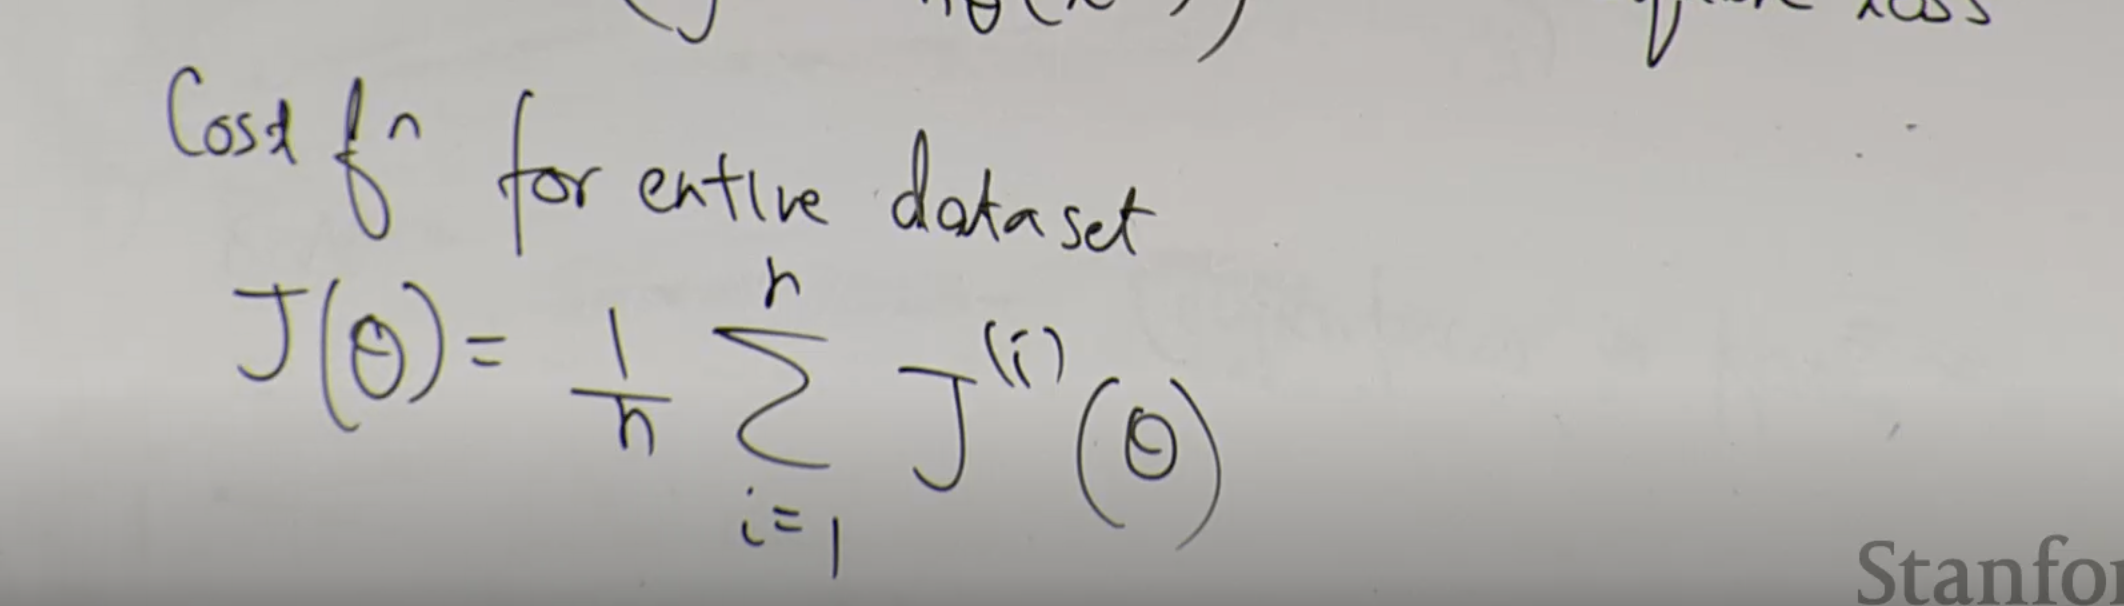 Cost fn for entire dataset
J(θ) = 1/n ∑_{i=1}^{n} J^{(i)}(θ)
Stanfo